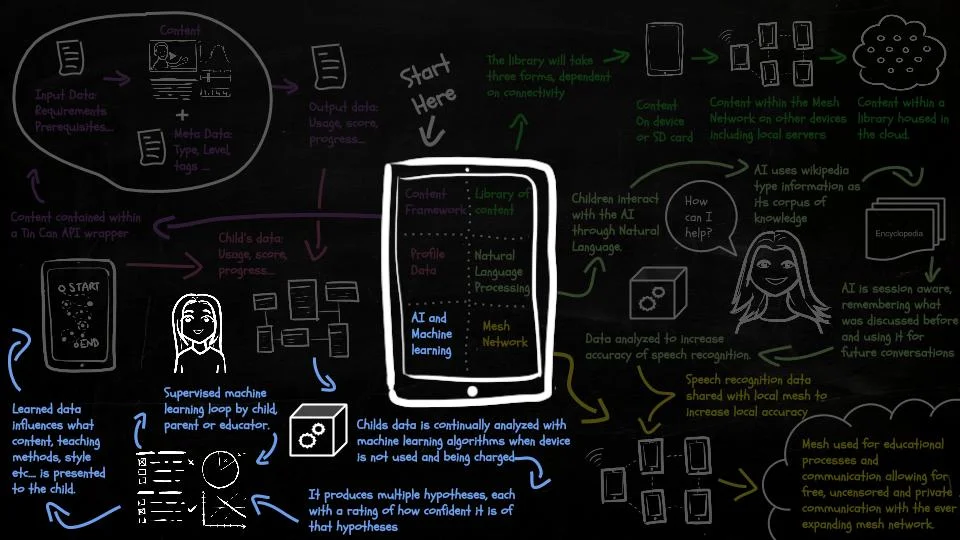 Content
Input Data:
Requirements
Prerequisites...
+
Meta Data:
Type, Level,
tags ...
Output data:
Usage, score,
progress...
Start
Here
The library will take
three forms, dependent
on connectivity
Content
On device
or SD card
Content within the Mesh
Network on other devices
including local servers
Content within a
library housed in
the cloud.
Content contained within
a Tin Can API wrapper
Child's data:
Usage, score,
progress...
START
END
Content
Framework
Library of
content
Profile
Data
Natural
Language
Processing
AI and
Machine
learning
Mesh
Network
Children interact
with the AI
through Natural
Language.
How
can I
help?
AI uses wikipedia
type information as
its corpus of
knowledge
Encyclopedia
AI is session aware,
remembering what
was discussed before
and using it for
future conversations
Data analyzed to increase
accuracy of speech recognition.
Speech recognition data
shared with local mesh to
increase local accuracy
Mesh used for educational
processes and
communication allowing for
free, uncensored and private
communication with the ever
expanding mesh network.
Supervised machine
learning loop by child,
parent or educator.
Learned data
influences what
content, teaching
methods, style
etc... is presented
to the child.
Childs data is continually analyzed with
machine learning algorithms when device
is not used and being charged
It produces multiple hypotheses, each
with a rating of how confident it is of
that hypotheses